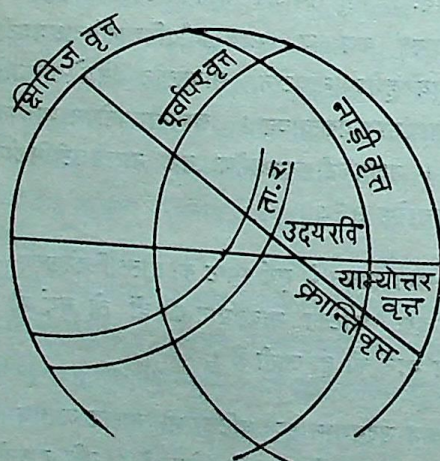 क्षितिज वृत्त
पूर्वापर वृत्त
नाड़ी वृत्त
ता. र.
उदयरवि
याम्योत्तर
वृत्त
क्रान्तिवृत्त